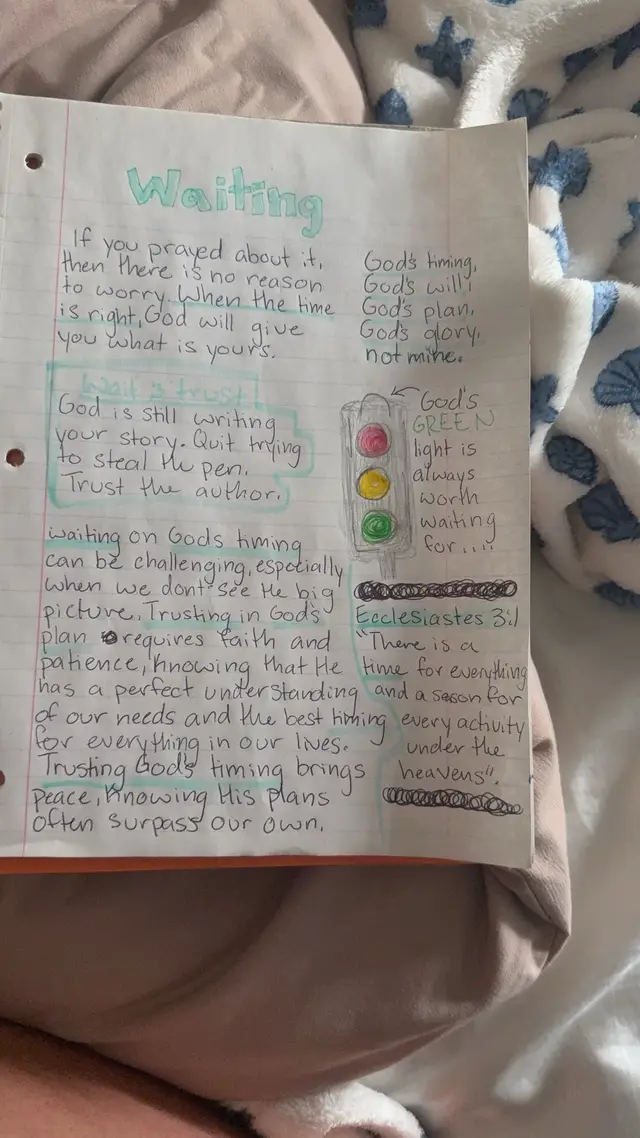 Waiting
If you prayed about it,
then there is no reason
to worry. When the time
is right, God will give
you what is yours.
God's timing,
God's will,
God's plan,
God's glory,
not mine.
Wait & trust!
God is still writing
your story. Quit trying
to steal the pen.
Trust the author.
God's
GREEN
light is
always
worth
waiting
for.....
waiting on Gods timing
can be challenging, especially
when we dont see the big
picture. Trusting in God's
plan requires faith and
patience, knowing that He
has a perfect understanding
of our needs and the best timing
for everything in our lives.
Trusting God's timing brings
peace, knowing His plans
often surpass our own.
Ecclesiastes 3:1
"There is a
time for everything
and a season for
every activity
under the
heavens".